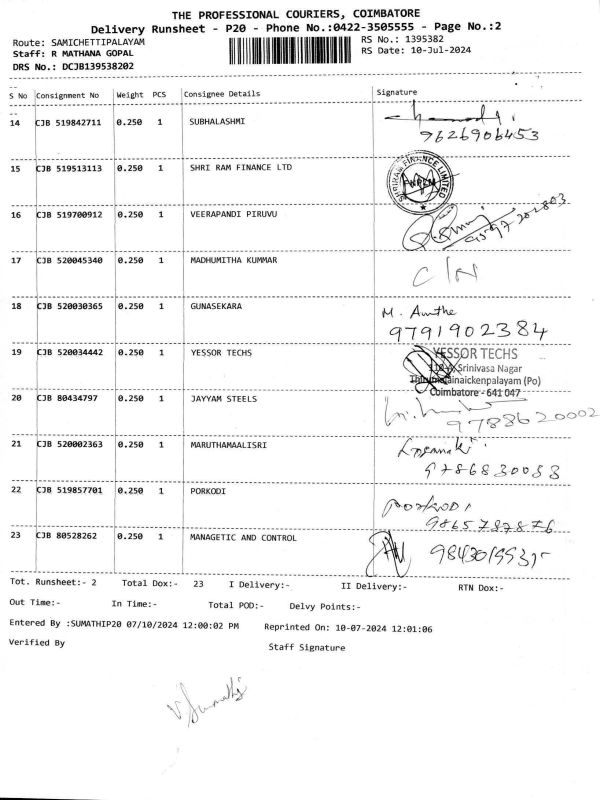 THE PROFESSIONAL COURIERS, COIMBATORE
Delivery Runsheet - P20 - Phone No.:0422-3505555 - Page No.:2
Route: SAMICHETTIPALAYAM
RS No.: 1395382
Staff: R MATHANA GOPAL
RS Date: 10-Jul-2024
DRS No.: DCJB139538202
S No Consignment No Weight PCS Consignee Details Signature
14 CJB 519842711 0.250 1 SUBHALASHMI
9626906453
15 CJB 519513113 0.250 1 SHRI RAM FINANCE LTD
SHRIRAM FINANCE LIMITED
16 CJB 519700912 0.250 1 VEERAPANDI PIRUVU
17 CJB 520045340 0.250 1 MADHUMITHA KUMMAR
C/N
18 CJB 520030365 0.250 1 GUNASEKARA
M.
9791902384
19 CJB 520034442 0.250 1 YESSOR TECHS
YESSOR TECHS
Srinivasa Nagar
(Po)
Coimbatore - 641 047
20 CJB 80434797 0.250 1 JAYYAM STEELS
9788620002
21 CJB 520002363 0.250 1 MARUTHAMAALISRI
9786830053
22 CJB 519857701 0.250 1 PORKODI
PORKODI
9865787876
23 CJB 80528262 0.250 1 MANAGETIC AND CONTROL
Tot. Runsheet:- 2 Total Dox:- 23 I Delivery:- II Delivery:- RTN Dox:-
Out Time:- In Time:- Total POD:- Delvy Points:-
Entered By :SUMATHIP20 07/10/2024 12:00:02 PM Reprinted On: 10-07-2024 12:01:06
Verified By Staff Signature
V. Sumathi